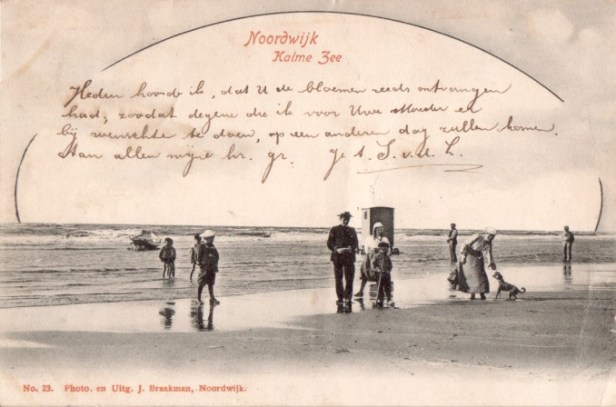 Noordwijk
Kalme Zee
Heden hoorde ik, dat U de bloemen reeds ontvangen
had; zoodat degene die ik voor Uwe Moeder en
bij wenschte te doen, op een anderen dag zullen komen.
Aan allen mijne hr. gr.
No. 23. Photo. en Uitg. J. Braakman, Noordwijk.